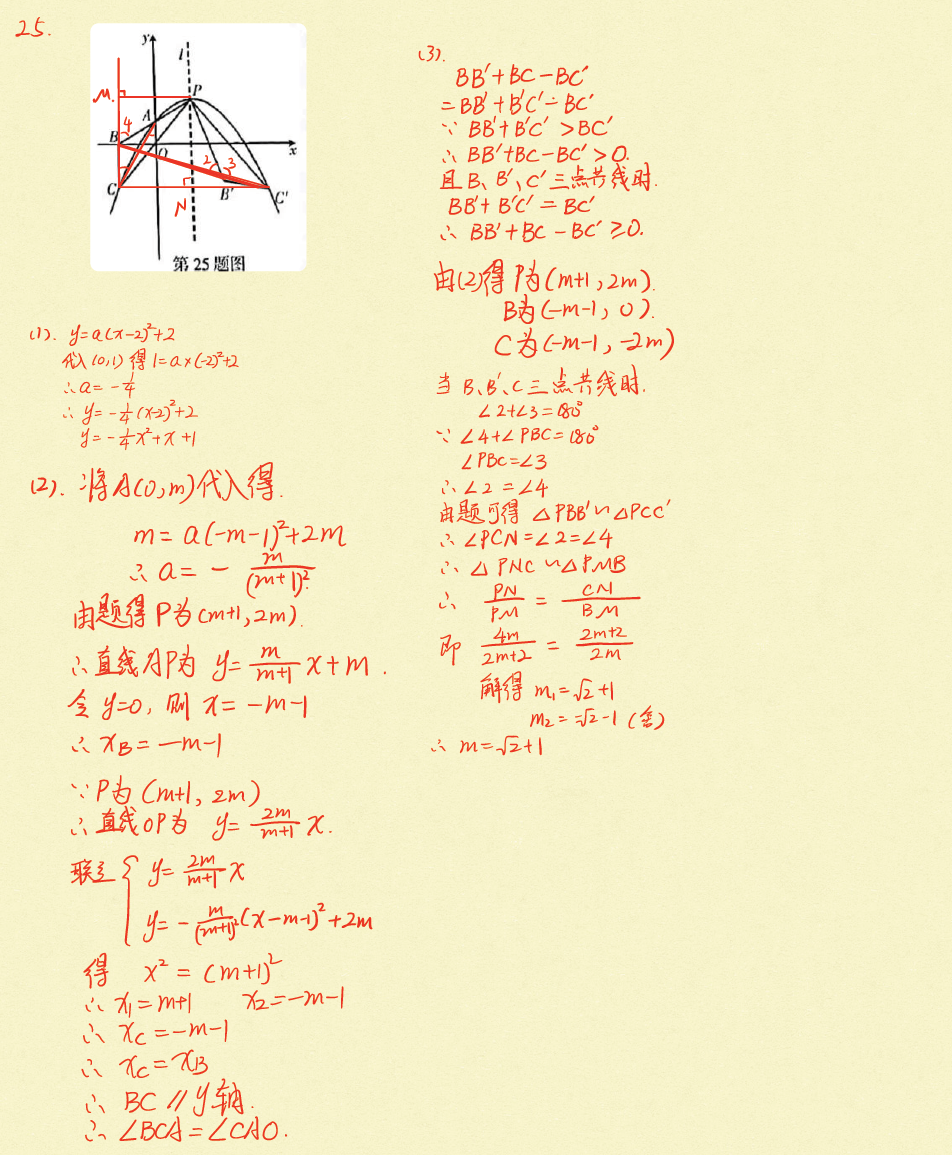 25.
y
l
M
P
4
A
B
O
x
2
3
C
N
B′
C′
第25题图
(1). y=a(x-2)²+2
代入(0,1)得1=a×(-2)²+2
∴a=-1/4
∴y=-1/4(x-2)²+2
y=-1/4x²+x+1
(2). 将A(0,m)代入得.
m=a(-m-1)²+2m
∴a=-m/(m+1)²
由题得P为(m+1,2m).
∴直线AP为 y=m/(m+1) x+m.
令y=0, 则x=-m-1
∴xB=-m-1
∵P为(m+1,2m)
∴直线OP为 y=2m/(m+1) x.
联立{y=2m/(m+1) x
y=-m/(m+1)²(x-m-1)²+2m
得 x²=(m+1)²
∴x₁=m+1 x₂=-m-1
∴xC=-m-1
∴xC=xB
∴BC∥y轴.
∴∠BCA=∠CAO.
(3).
BB′+BC-BC′
=BB′+B′C′-BC′
∵BB′+B′C′>BC′
∴BB′+BC-BC′>0.
且B、B′、C′三点共线时.
BB′+B′C′=BC′
∴BB′+BC-BC′≥0.
由(2)得P为(m+1,2m).
B为(-m-1,0).
C为(-m-1,-2m)
当B、B′、C三点共线时.
∠2+∠3=180°
∵∠4+∠PBC=180°
∠PBC=∠3
∴∠2=∠4
由题可得△PBB′∽△PCC′
∴∠PCN=∠2=∠4
∴△PNC∽△PMB
∴PN/PM=CN/BM
即4m/(2m+2)=(2m+2)/2m
解得m₁=√2+1
m₂=-√2-1(舍)
∴m=√2+1